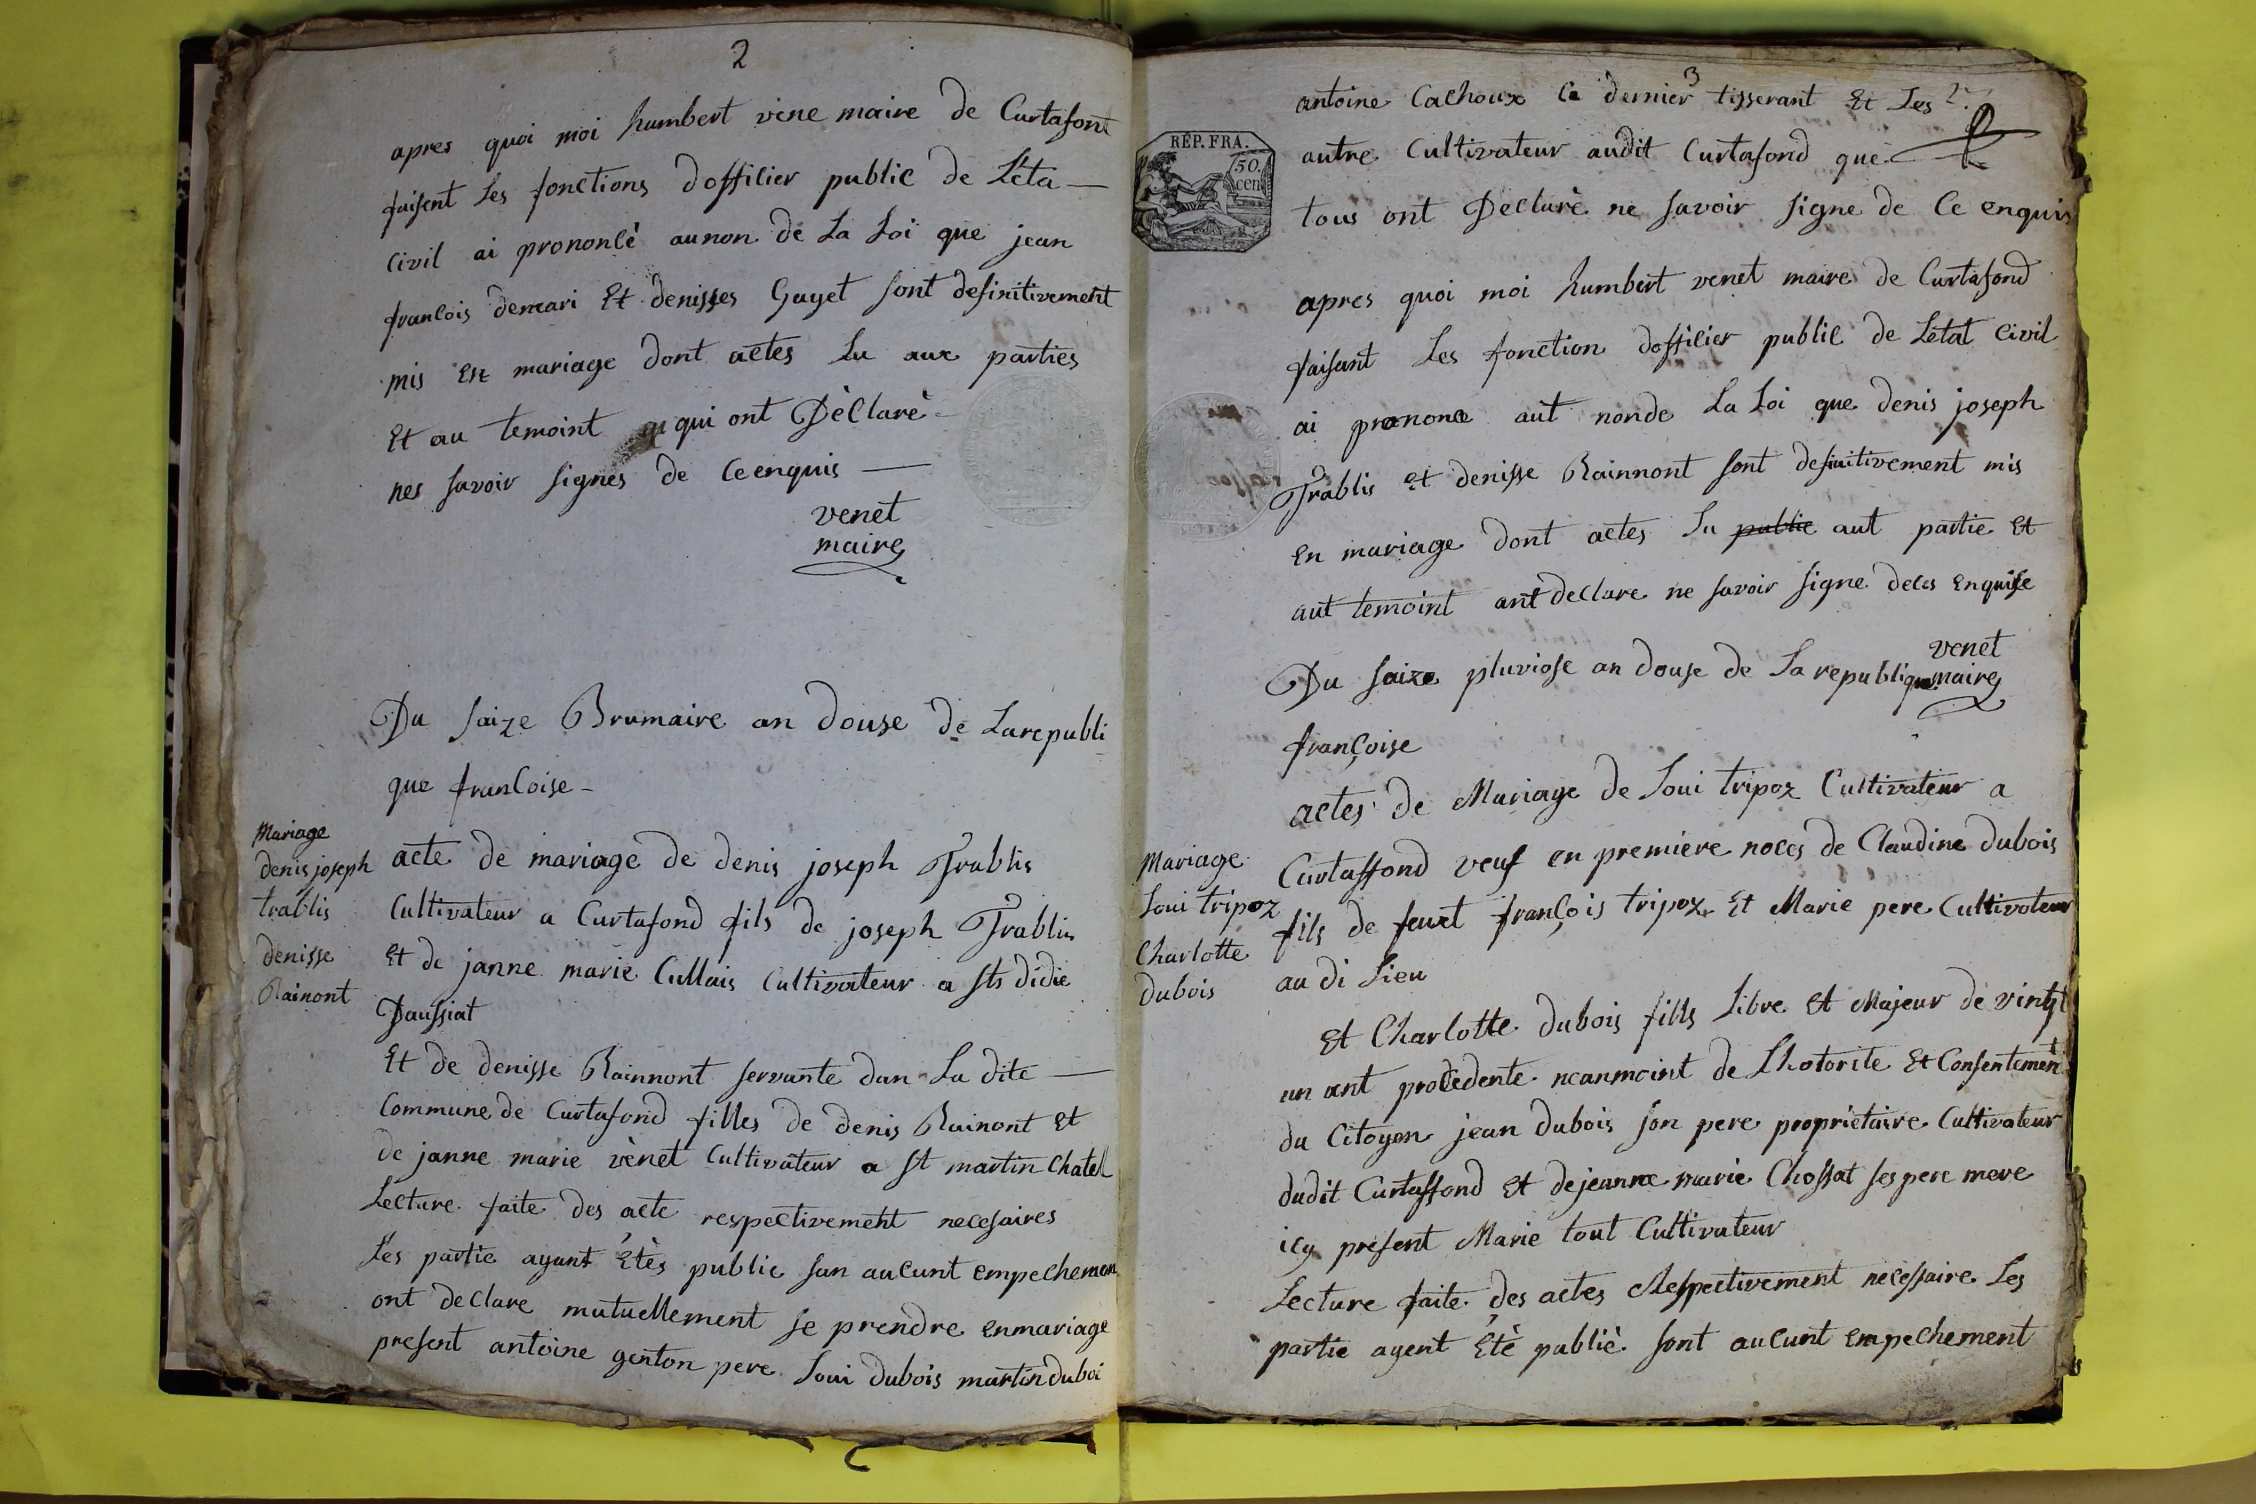 2
apres quoi moi humbert vene maire de Curtafont
faisent Les fonctions dofficier public de L'éta —
Civil ai prononcè aunon de La Loi que jean
francois demari Et denisses Gayet sont definitivement
mis En mariage dont actes Lu aux parties
Et au temoint qui ont Dèclarè
nes savoir signes de Ceenquis —
venet
maire
Du saize Brumaire an douse de Larepubli
que francoise -
Mariage
denis joseph
trablis
denisse
Rainont
acte de mariage de denis joseph Trablis
Cultivateur a Curtafond fils de joseph Trablis
Et de janne marie Cullais Cultivateur a sts didie
Daussiat
Et de denisse Rainnont servante dan La dite —
Commune de Curtafond filles de denis Rainont Et
de janne marie vènet Cultivateur a st martin Chatel
Lecture faite des acte respectivement necesaires
Les partie ayant Étès public san aucunt empechemen
ont declare mutuellement se prendre enmariage
present antoine genton pere Loui dubois martin duboi
3
antoine Cachoux Ce dernier tisserant Et Les
autre Cultivateur audit Curtafond que
tous ont Dèclarè ne savoir signe de Ce enquis
REP. FRA.
50.
cen
apres quoi moi humbert venet maire de Curtafond
faisant Les fonction dofficier public de Létat Civil
ai prononce aut nonde La Loi que denis joseph
Trablis et denisse Rainnont sont definitivement mis
En mariage dont actes Lu public aut partie Et
aut temoint ant declare ne savoir signe deces Enquise
venet
maire
Du saize pluviose an douse de La republique
françoise
Mariage
Loui tripoz
Charlotte
dubois
actes de Mariage de Loui tripoz Cultivateur a
Curtaffond veuf en premiere noces de Claudine dubois
fils de feuet françois tripoz Et Marie pere Cultivateur
au di Lieu
Et Charlotte dubois fills Libre Et Majeur de vingt
un ant procèdente neanmoint de Lhotorite Et Consentement
du Citoyen jean dubois son pere propriètaire Cultivateur
dudit Curtaffond Et dejeanne marie Chossat ses pere mere
icy present Marie tout Cultivateur
Lecture faite des actes Respectivement necessaire Les
partie ayent Étè publiè sont aucunt Empechement